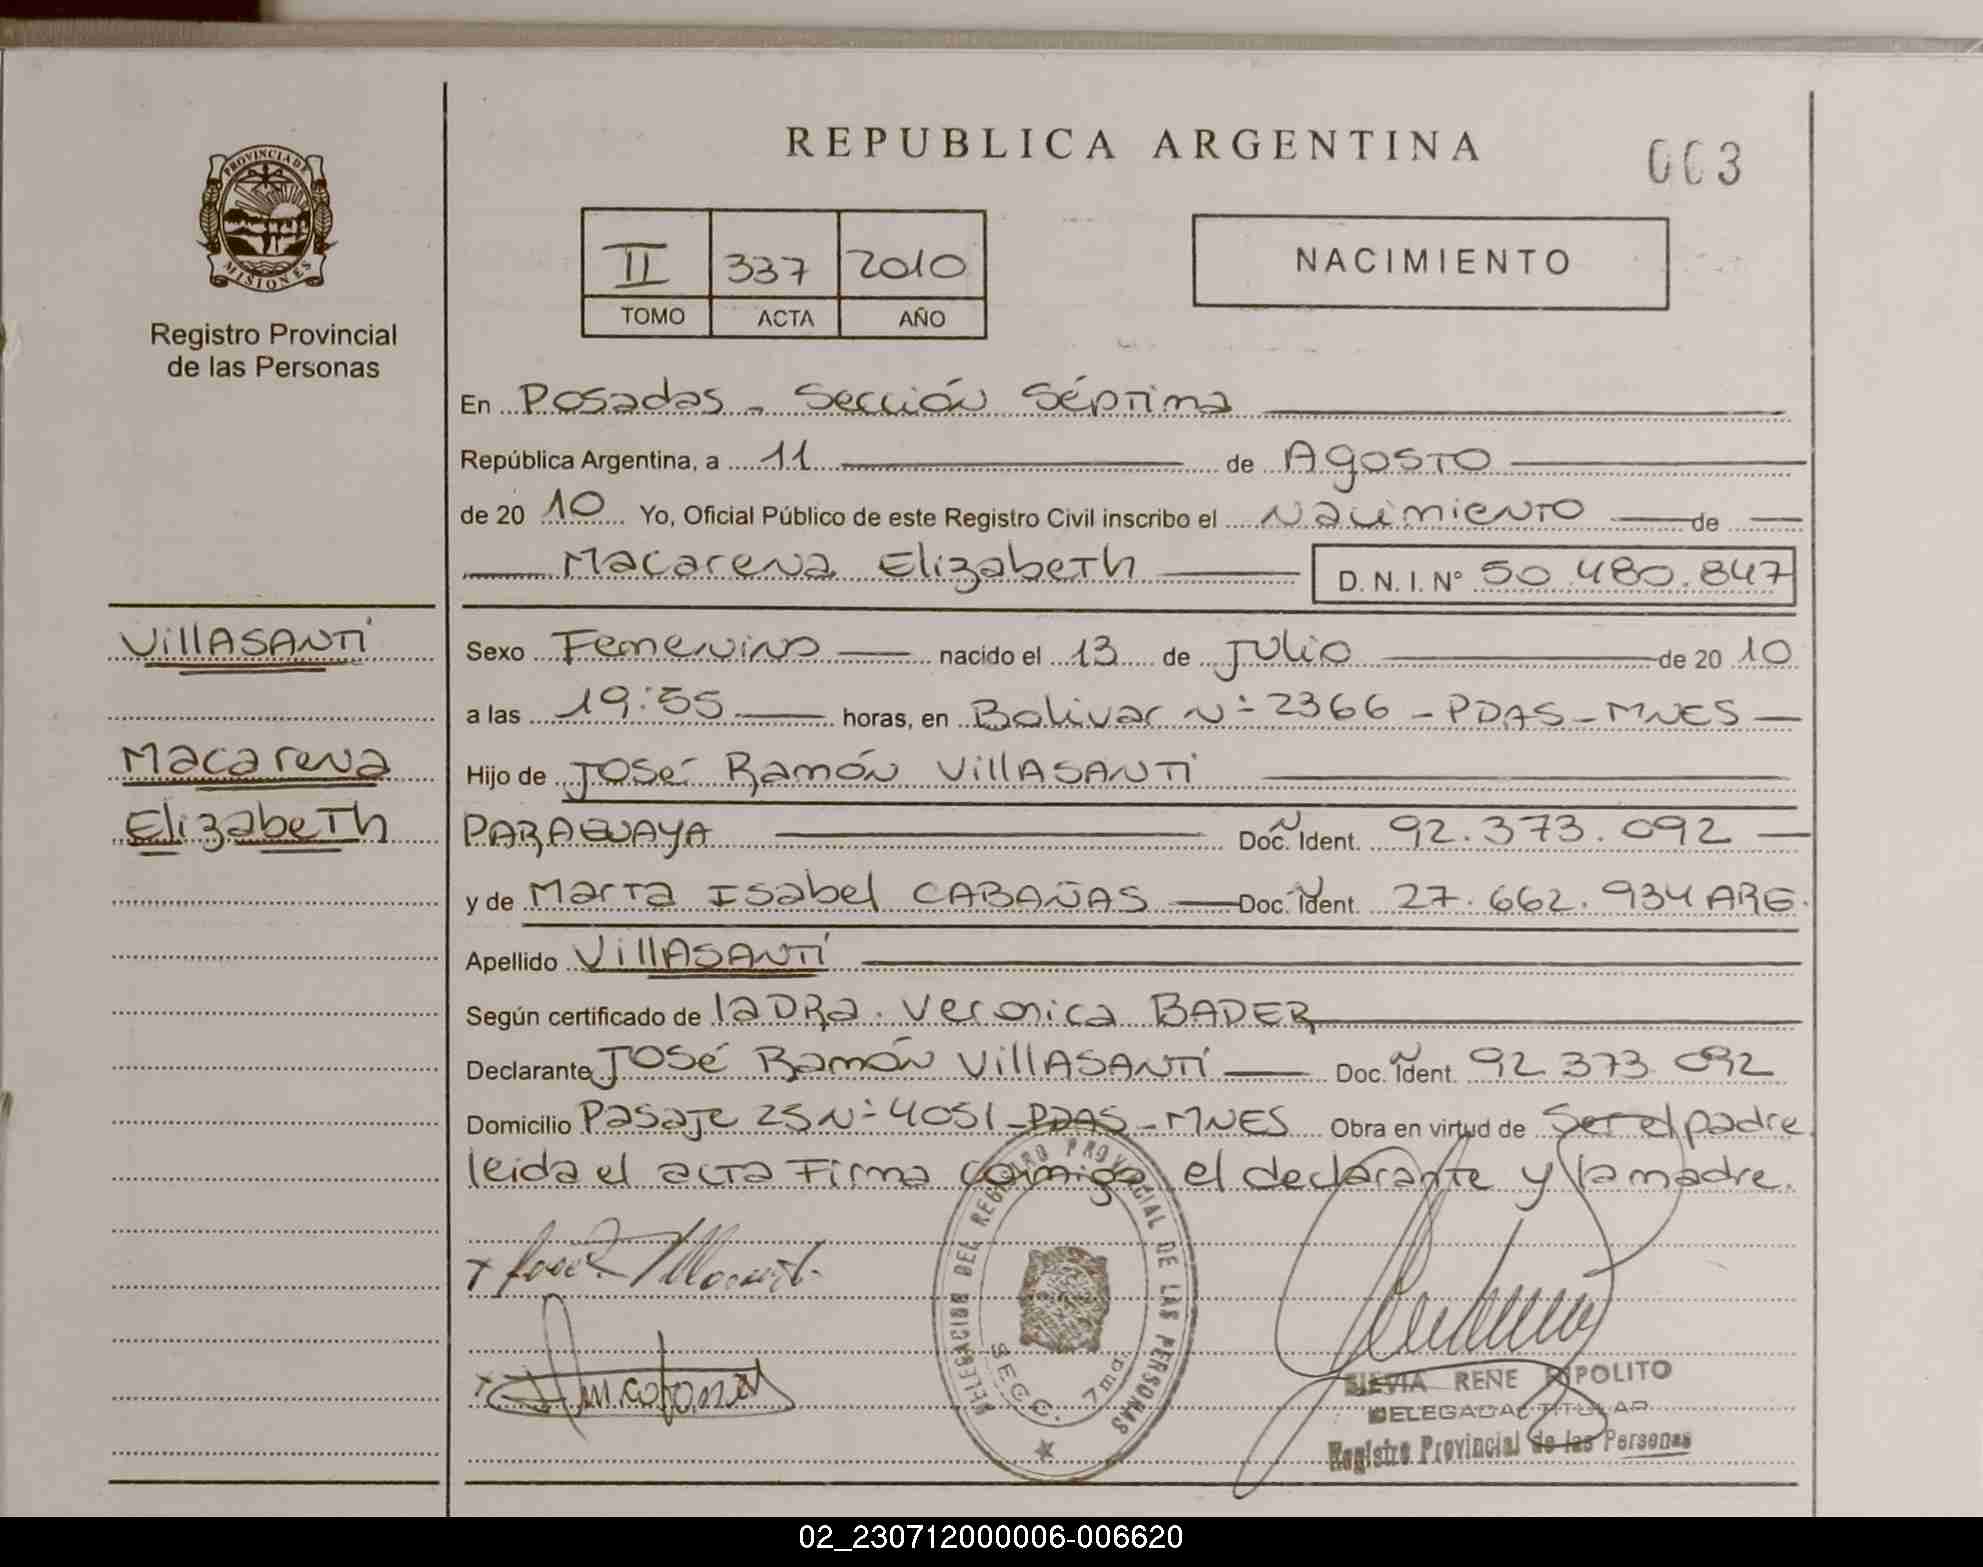 REPUBLICA ARGENTINA
003
PROVINCIA DE
MISIONES
Registro Provincial
de las Personas
II 337 2010
TOMO ACTA AÑO
NACIMIENTO
En Posadas - Sección Séptima
República Argentina, a 11 de Agosto
de 20 10 Yo, Oficial Público de este Registro Civil inscribo el Nacimiento de
Macarena Elizabeth D. N. I. N° 50.480.847
VillASANTÍ
Macarena
Elizabeth
Sexo Femenino nacido el 13 de Julio de 20 10
a las 19:55 horas, en Bolivar N° 2366 - PDAS - MNES
Hijo de José Ramón VillASANTÍ
PARAGUAYA Doc. Ident. 92.373.092
y de Marta Isabel CABAÑAS Doc. Ident. 27.662.934 ARG.
Apellido VillASANTÍ
Según certificado de la DRa. Veronica BADER
Declarante José Ramón VillASANTÍ Doc. Ident. 92 373 092
Domicilio Pasaje 25 N° 4051 - PDAS - MNES Obra en virtud de Ser el padre
leida el acta Firma conmigo el declarante y la madre.
DELEGACION DEL REGISTRO PROVINCIAL DE LAS PERSONAS
SECC. 7ma.
RENE RIPOLITO
DELEGADA TITULAR
Registro Provincial de las Personas
02_230712000006-006620